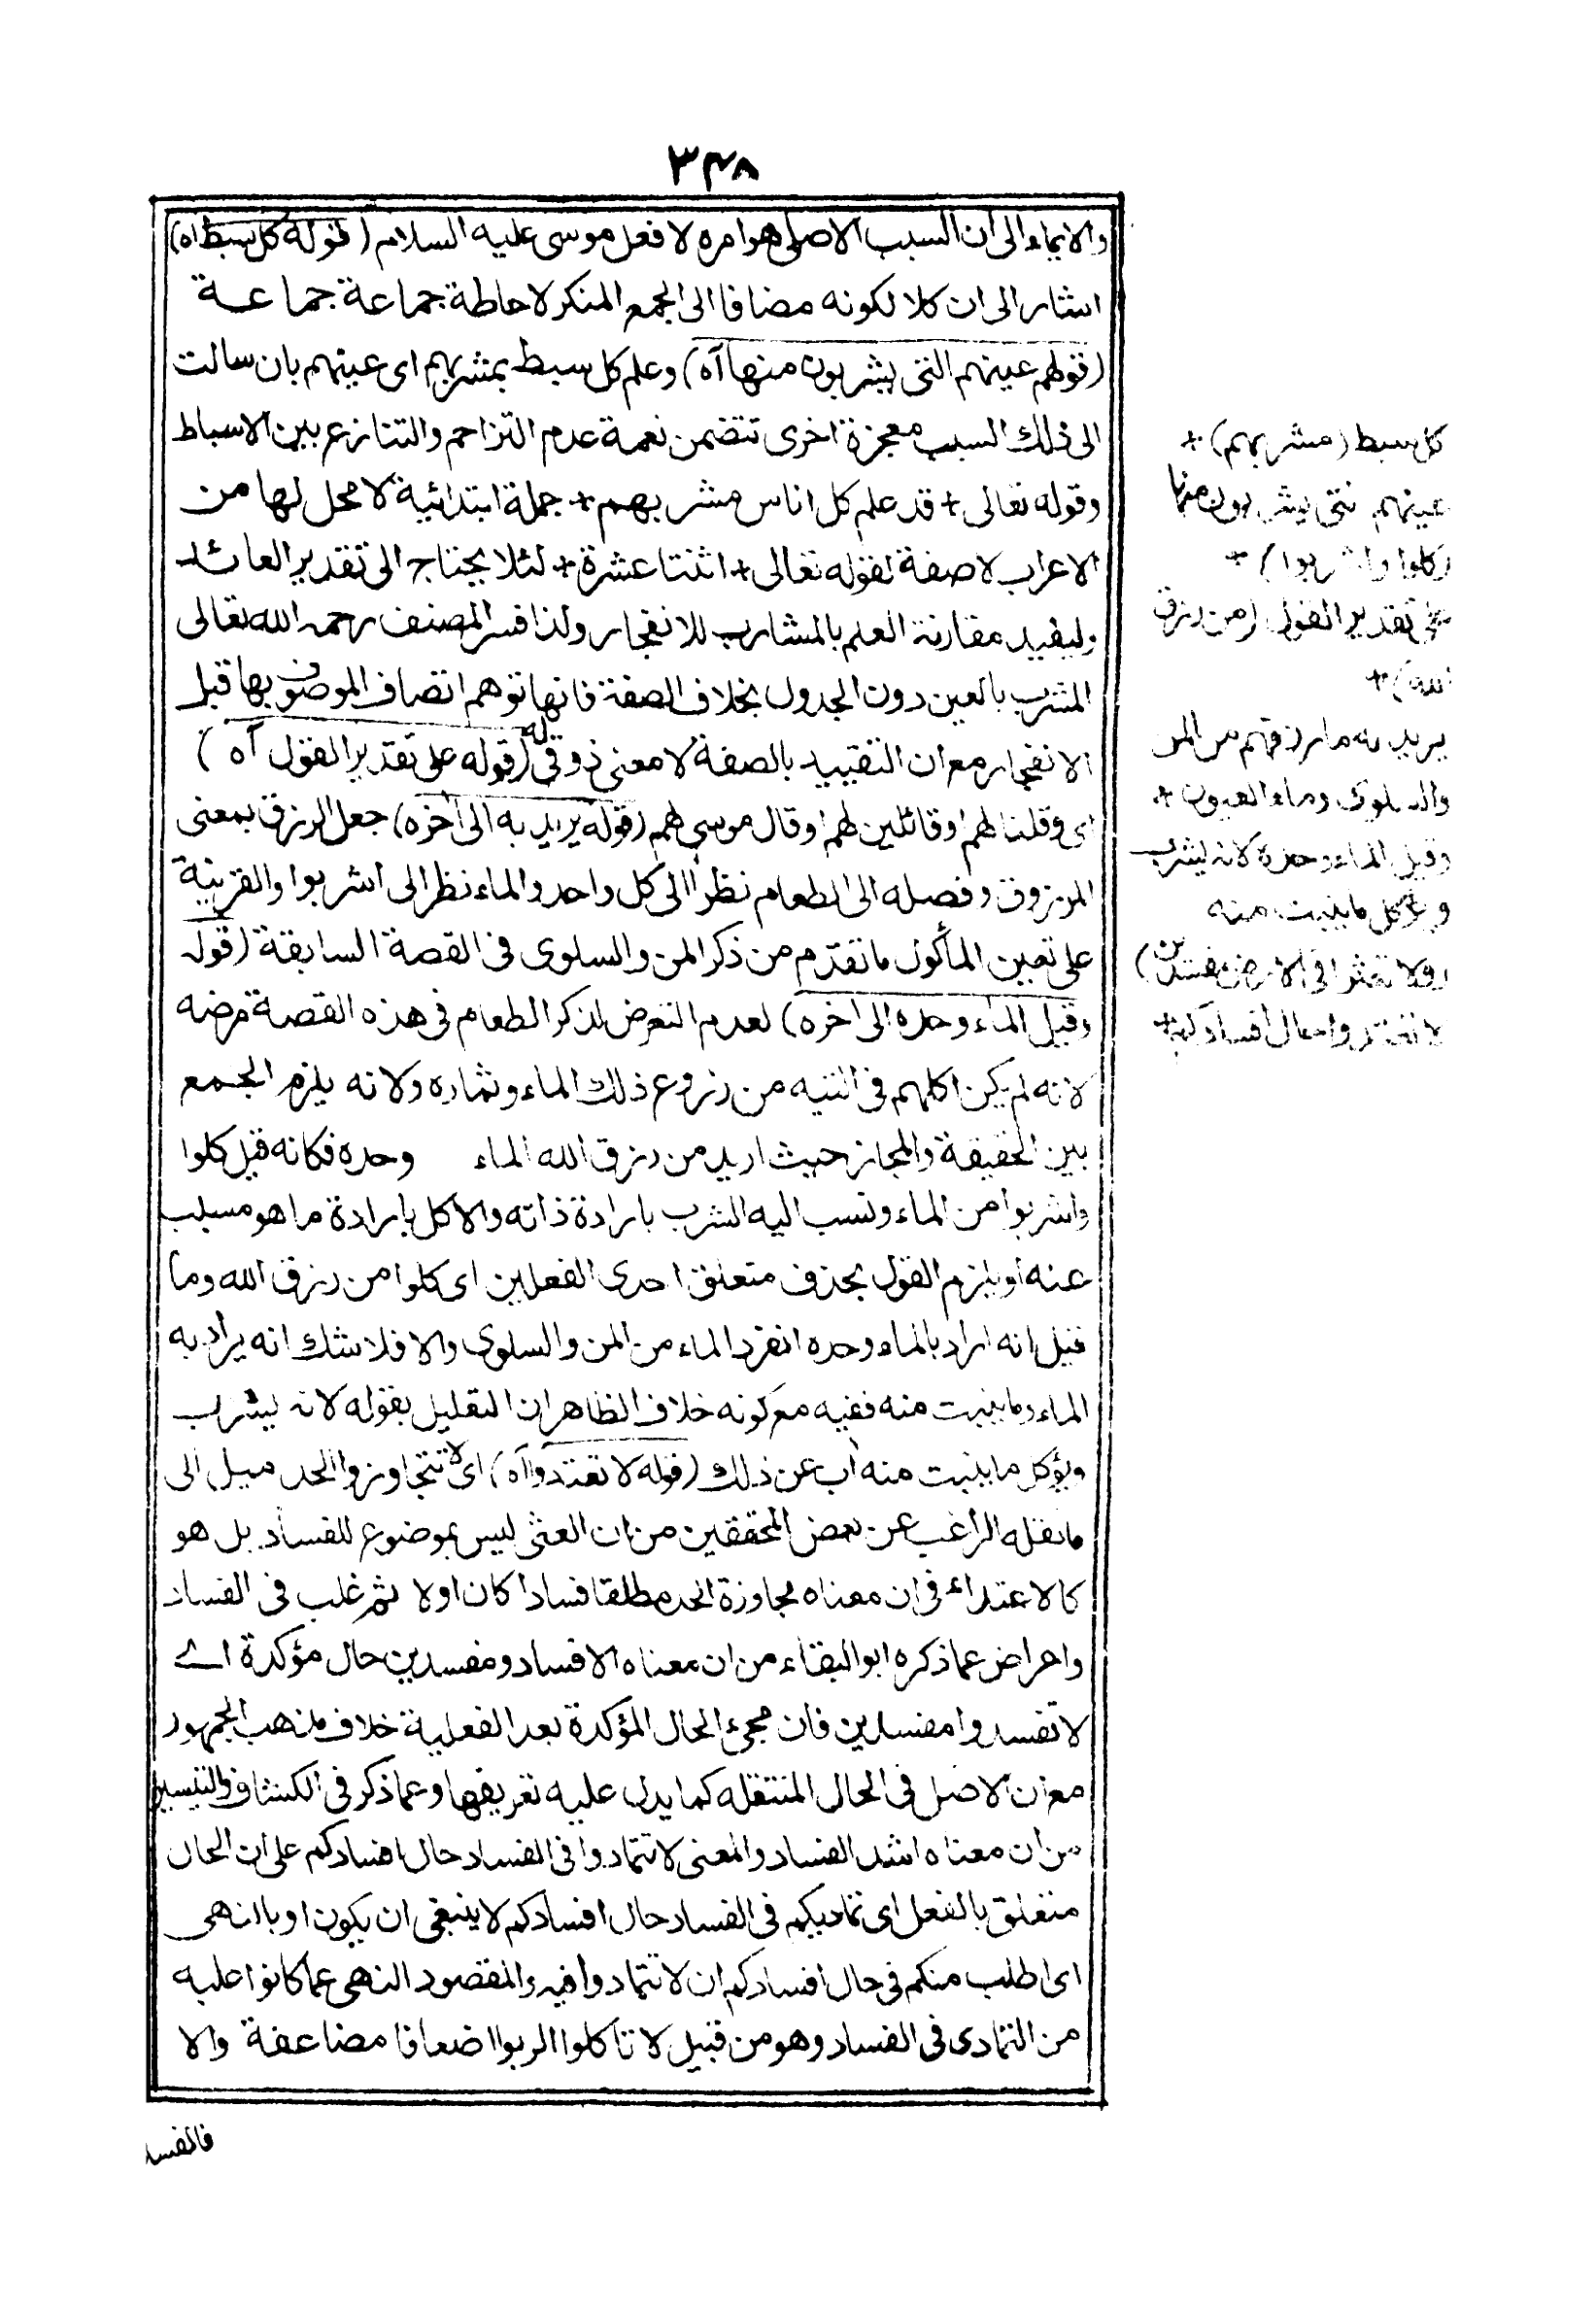 ٣٤٨
والايماء الى ان السبب الاصلى هو امره لا فعل موسى عليه السلام (قوله كل سبط اه)
اشار الى ان كلا لكونه مضافا الى الجمع المنكر لاحاطة جماعة جماعة
(قولهم عينهم التى يشربون منها آه) وعلم كل سبط بمشربهم اى عينهم بان سالت
الى ذلك السبب معجزة اخرى تتضمن نعمة عدم التزاحم والتنازع بين الاسباط
وقوله تعالى + قد علم كل اناس مشربهم + جملة ابتدائية لا محل لها من
الاعراب لا صفة لقوله تعالى + اثنتا عشرة + لئلا يحتاج الى تقدير العائد
وليفيد مقارنة العلم بالمشارب للانفجار ولذا فسر المصنف رحمه الله تعالى
المشرب بالعين دون الجدول بخلاف الصفة فانها توهم اتصاف الموصوف بها قبل
الانفجار مع ان التقييد بالصفة لا معنى له ذوقى (قوله على تقدير القول آه)
اى وقلنا لهم او قائلين لهم او قال موسى لهم (قوله يريد به الى اخره) جعل الرزق بمعنى
المرزوق وفصله الى الطعام نظرا الى كلوا والماء نظر الى اشربوا والقرينة
على تعين المأكول ما تقدم من ذكر المن والسلوى فى القصة السابقة (قوله
وقيل الماء وحده الى اخره) لعدم التعرض لذكر الطعام فى هذه القصة مرضه
لانه لم يكن اكلهم فى التيه من زروع ذلك الماء وثماره ولانه يلزم الجمع
بين الحقيقة والمجاز حيث اريد من رزق الله الماء وحده فكانه قيل كلوا
واشربوا من الماء ونسب اليه الشرب بارادة ذاته والاكل بارادة ما هو مسبب
عنه او يلزم القول بحذف متعلق احدى الفعلين اى كلوا من رزق الله وما
قيل انه اراد بالماء وحده انفرد الماء من المن والسلوى والا فلا شك انه يراد به
الماء وما ينبت منه ففيه مع كونه خلاف الظاهر ان التعليل بقوله لانه يشرب
ويؤكل ما ينبت منه آب عن ذلك (قوله لا تعتدوا اه) اى لا تتجاوزوا الحد ميل الى
ما نقله الراغب عن بعض المحققين من ان العثى ليس بموضوع للفساد بل هو
كالاعتداء فى ان معناه مجاوزة الحد مطلقا فسادا كان اولا ثم غلب فى الفساد
واعراض عما ذكره ابو البقاء من ان معناه الافساد ومفسدين حال مؤكدة اے
لا تفسدوا مفسدين فان مجىء الحال المؤكدة بعد الفعلية خلاف مذهب الجمهور
مع ان الاصل فى الحال المنتقله كما يدل عليه تعريفها وعما ذكر فى الكشاف والتيسير
من ان معناه اشد الفساد والمعنى لا تتمادوا فى الفساد حال افسادكم على ان الحال
متعلق بالفعل اى تماديكم فى الفساد حال افسادكم لا ينبغى ان يكون او بالنهى
اى اطلب منكم فى حال افسادكم ان لا تتمادوا فيه والمقصود النهى عما كانوا عليه
من التمادى فى الفساد وهو من قبيل لا تاكلوا الربوا اضعافا مضاعفة والا
فالفسا
كل سبط (مشربهم) +
عينهم التى يشربون منها
(كلوا واشربوا) +
على تقدير القول (من رزق
الله) +
يريد به ما رزقهم من المن
والسلوى وماء العيون +
وقيل الماء وحده لانه يشرب
ويؤكل ما ينبت منه
(ولا تعثوا فى الارض مفسدين)
لا تعتدوا حال افسادكم +